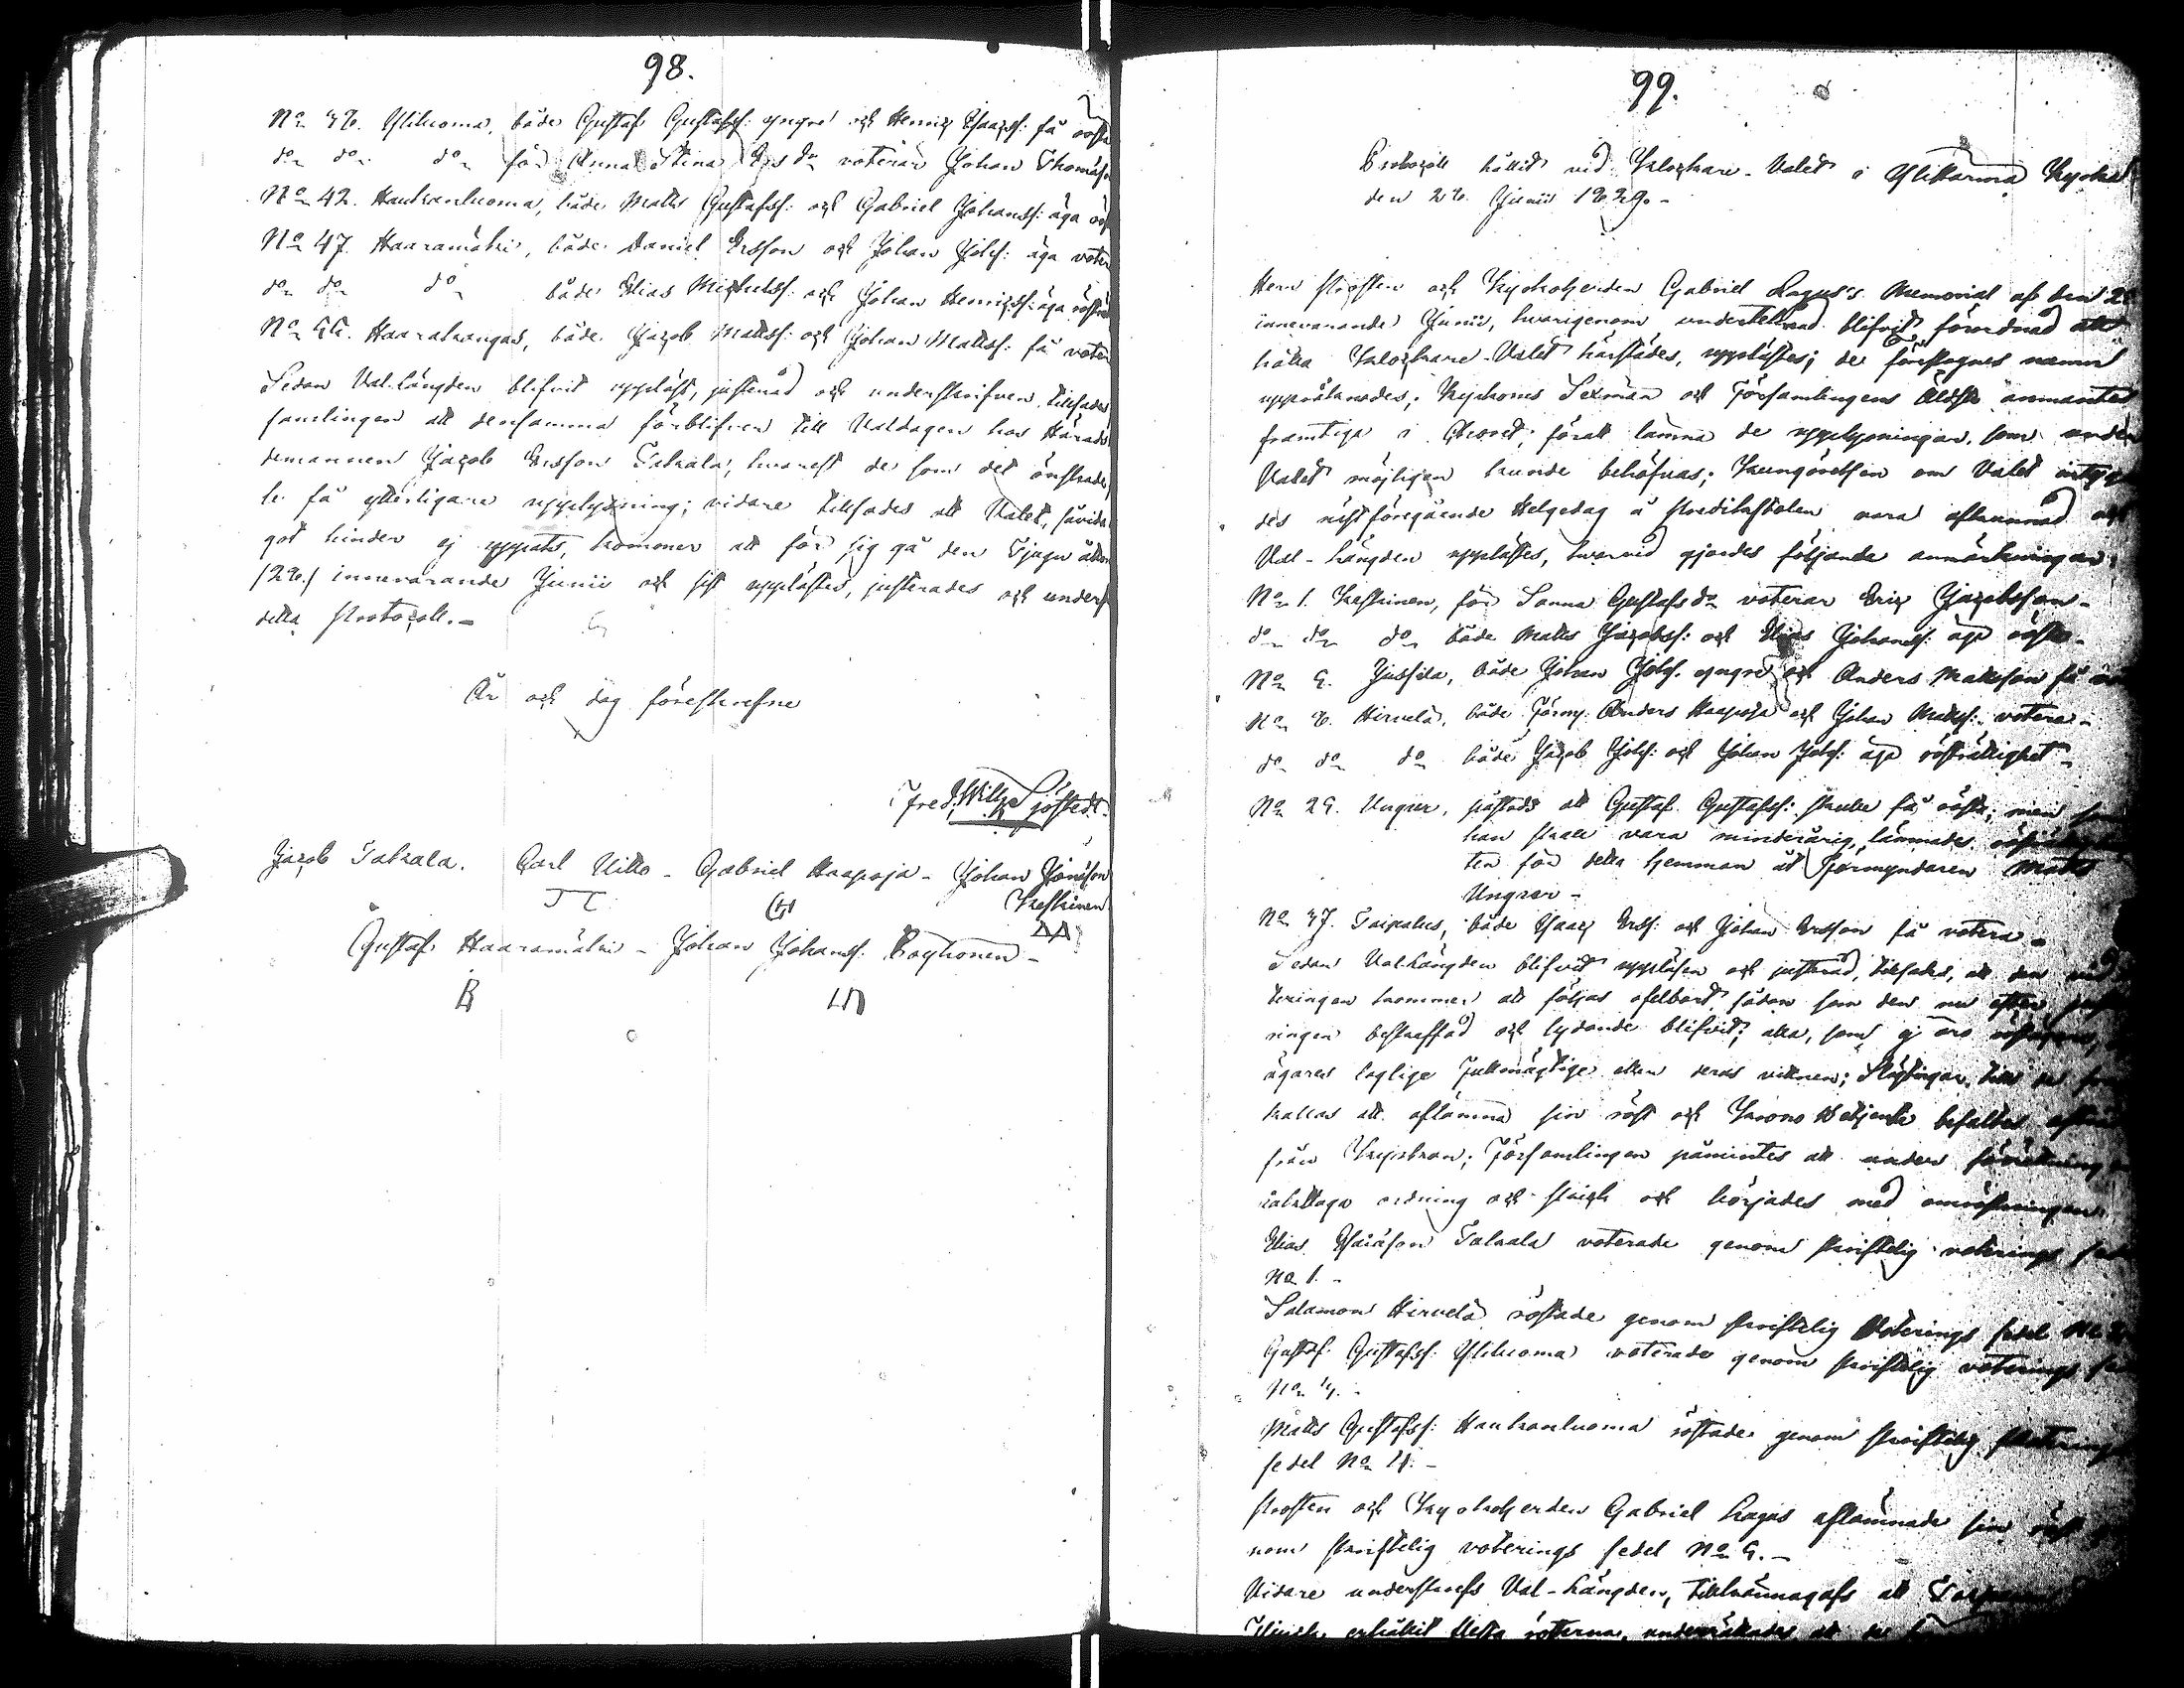 98.
No 38. Yliluoma, både Gustaf Gustafss: yngre och Henric Isaacss: få rösta
do do do för Anna Stina Ersdr voterar Johan Thomass:
No 42. Haukanluoma, både Matts Gustafss: och Gabriel Johanss: äga rösta
No 47. Haaramäki, både Daniel Ersson och Johan Johss: äga votera
do do do både Elias Michelss: och Johan Henricss: äga
No Haarakangas, både Jacob Mattss: och Johan Mattss: få votera
Sedan Val-längden blifvit uppläst, justerad och underskrifven, tillsades
samlingen att densamma förblifver till Valdagen hos Härads
demannen Jacob Ersson Takala, hwarest de som det önskade,
le få ytterligare upplysning; vidare tillsades att Valet, såvida
got hinder ej uppstår, kommer att för sig gå den Tjugu åttonde
/28./ innevarande Junii och sist upplästes, justerades och underskrefs
detta Protocoll.-
År och dag föreskrefne
Fred. Wilh. Sjöstedt.
Jacob Takala. Carl Uitto - Gabriel Haapoja - Johan Jönsson
Keskinen
Gustaf Haaramäki - Johan Johanss.
99.
Protocoll hållit vid Klockare-Valet i Ylikarma Kyrka
den 28. Junii 1829.-
Herr Prosten och Kyrkoherden Gabriel Lagus's Memorial af den
innevarande Junii, hwarigenom undertecknad blifvit förordnad att
hålla Klockare-Valet härstädes, upplästes; de föreslagnes namn
uppräknades; Kyrkones Sexmän och Församlingens Äldste anmantes
framstiga i Choret, föratt lämna de upplysningar, som under
Valet möjligen kunde behöfvas; Kungörelsen om Valet
des nästföregående Helgedag å Predikstolen vara afkunnad och
Val-Längden upplästes, hwarvid gjordes följande anmärkningar:
No 1. Keskinen, för Sanna Gustafsdr voterar Eric Jacobsson-
do do do både Matts Jacobss: och Elias Johanss: äga rösta-
No Jussila, både Johan Johss. yngre och Anders Mattsson få
No 8. Hirvelä, både Förmy: Anders Haapoja och Johan Mattss: votera-
do do do både Jacob Johss: och Johan Johss: äga rösträttighet-
No Ungrar, påstods att Gustaf Gustafss: skulle få rösta; men som
han skall vara minderårig, lämnades
ten för detta hemman åt Förmyndaren Matts
Ungrar-
No 37. Taipalus, både Isaac Erss: och Johan Ersson få votera-
Sedan Val-Längden blifvit uppläsen och justerad, tillsades, att den
teringen kommer att följas ofelbart, sådan som den nu efter
ringen beskaffad och lydande blifvit; alla, som ej äro
ägares laglige Fullmägtige eller deras vittnen; Slägtingar till de som
kallas att aflämna sin röst och Krono Betjente befaltes
från Kyrkan; Församlingen påmintes att under förrättningen
iakttaga ordning och skick och börjades med omröstningen.
Elias Isaacson Takala voterade genom skriftelig voterings
No 1.-
Salamon Hirvelä röstade genom skriftelig Voterings sedel No
Gustaf Gustafss: Yliluoma voterade genom skriftelig voterings
No 3.-
Matts Gustafss: Haukanluoma röstade genom skriftelig
sedel No 4.-
Prosten och Kyrkoherden Gabriel Lagus aflämnade sin röst
nom skriftelig voterings sedel No
Vidare underskrefs Val-Längden, tillkännagafs att
erhållit flesta rösterna, underrättades att